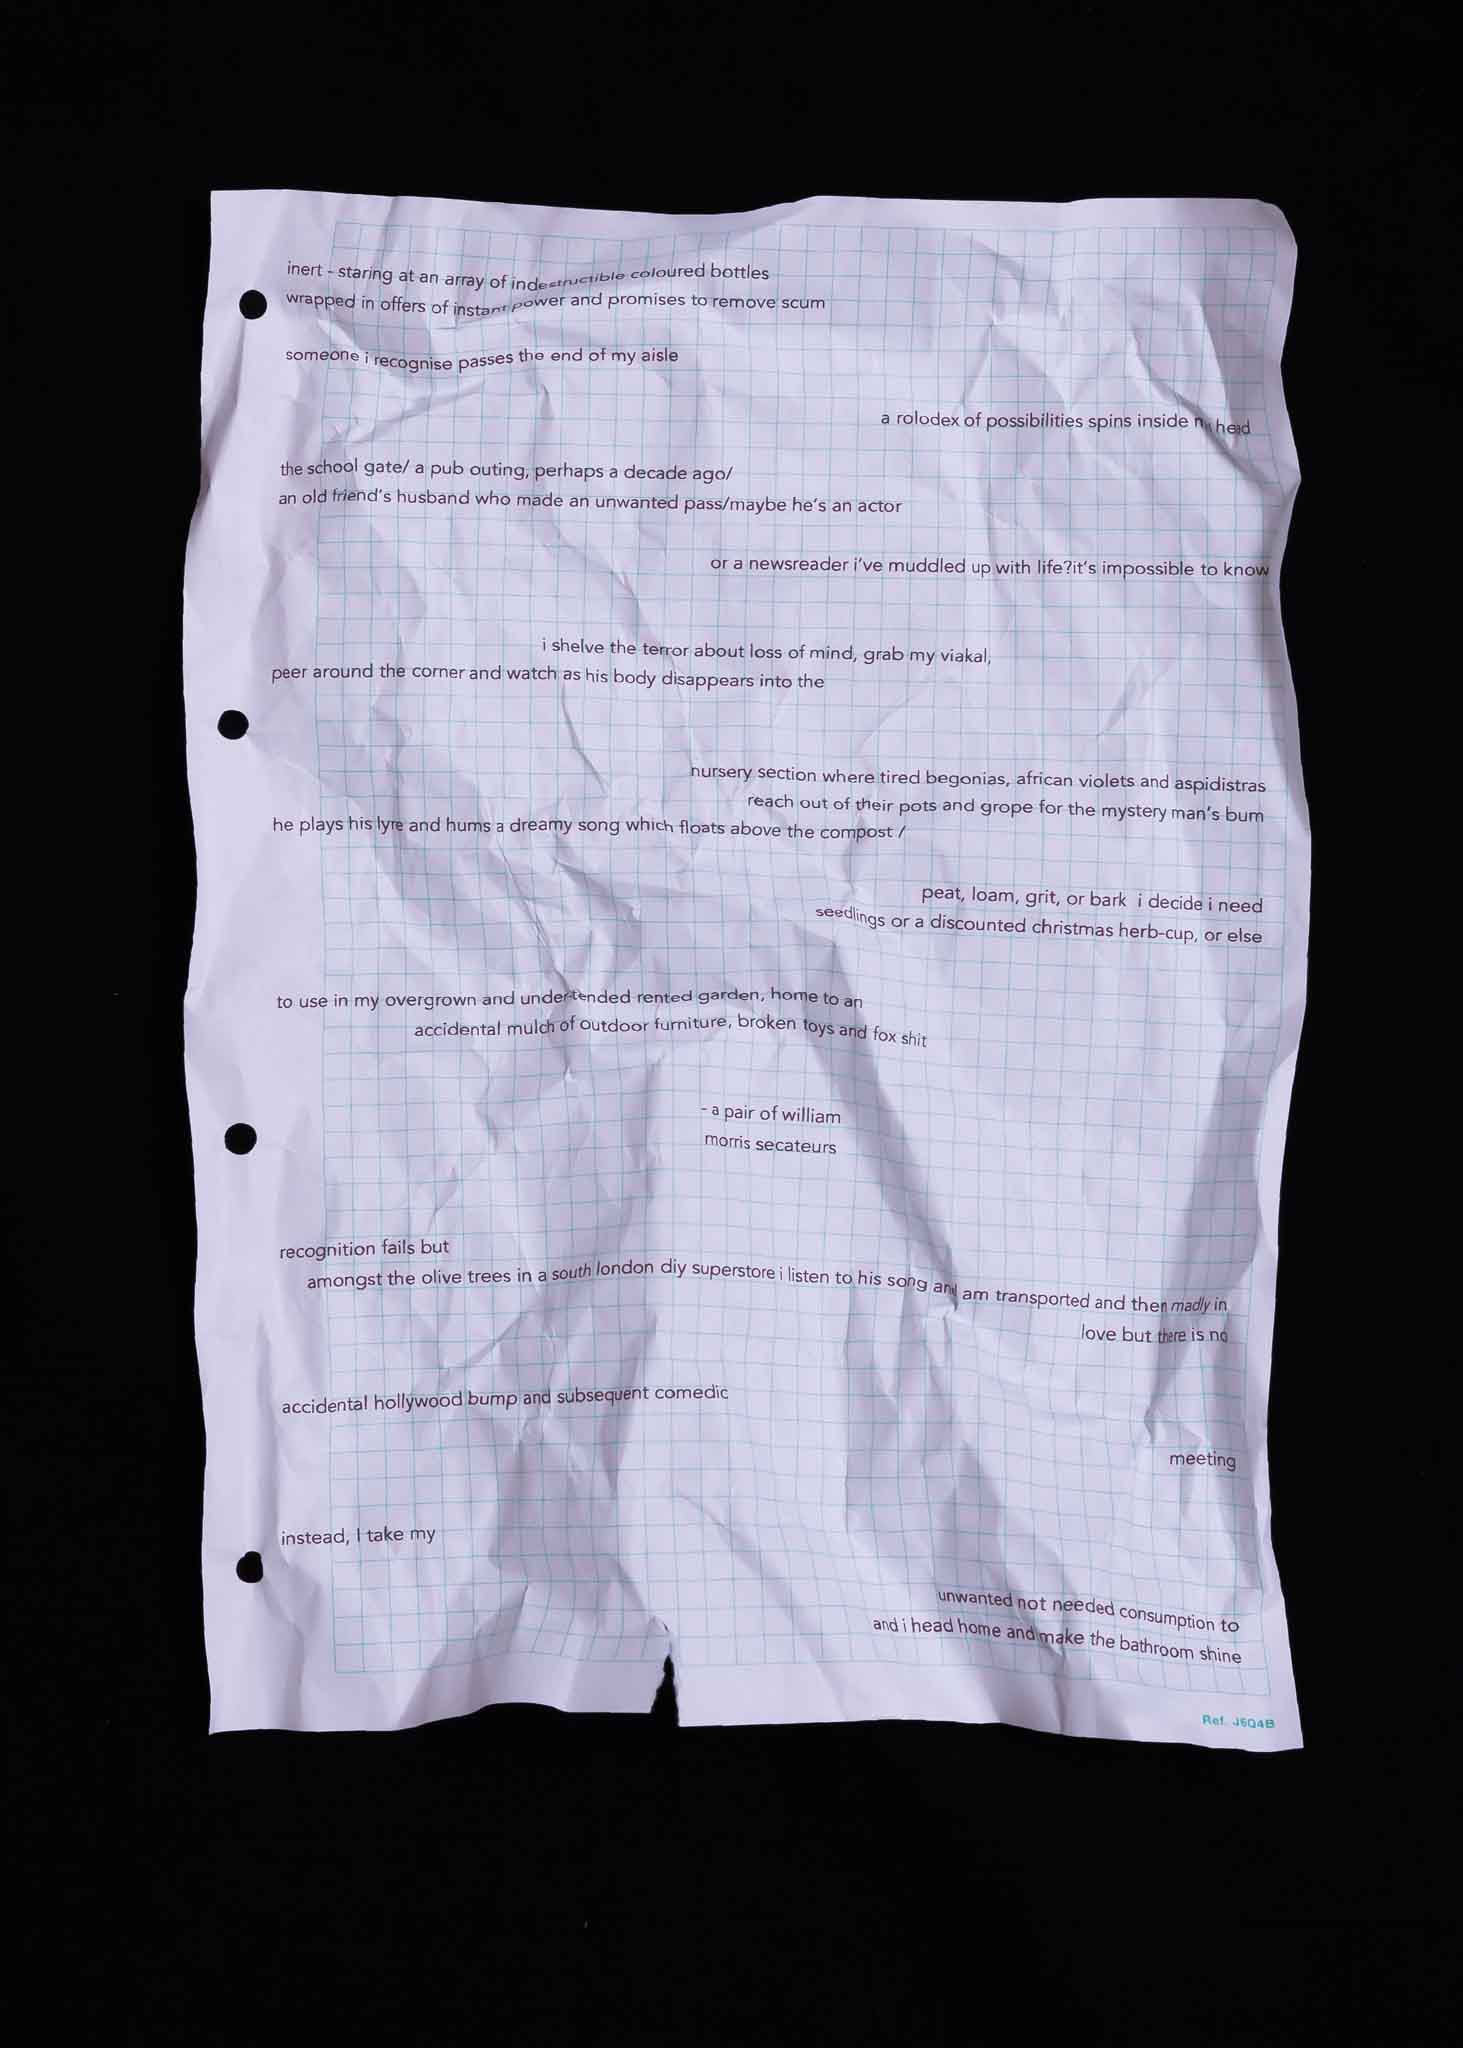 inert - staring at an array of indestructible coloured bottles
wrapped in offers of instant power and promises to remove scum
someone i recognise passes the end of my aisle
a rolodex of possibilities spins inside my head
the school gate/ a pub outing, perhaps a decade ago/
an old friend's husband who made an unwanted pass/maybe he's an actor
or a newsreader i've muddled up with life?it's impossible to know
i shelve the terror about loss of mind, grab my viakal,
peer around the corner and watch as his body disappears into the
nursery section where tired begonias, african violets and aspidistras
reach out of their pots and grope for the mystery man's bum
he plays his lyre and hums a dreamy song which floats above the compost /
peat, loam, grit, or bark i decide i need
seedlings or a discounted christmas herb-cup, or else
to use in my overgrown and under-tended rented garden, home to an
accidental mulch of outdoor furniture, broken toys and fox shit
- a pair of william
morris secateurs
recognition fails but
amongst the olive trees in a south london diy superstore i listen to his song and am transported and then madly in
love but there is no
accidental hollywood bump and subsequent comedic
meeting
instead, I take my
unwanted not needed consumption to
and i head home and make the bathroom shine
Ref. J6Q4B